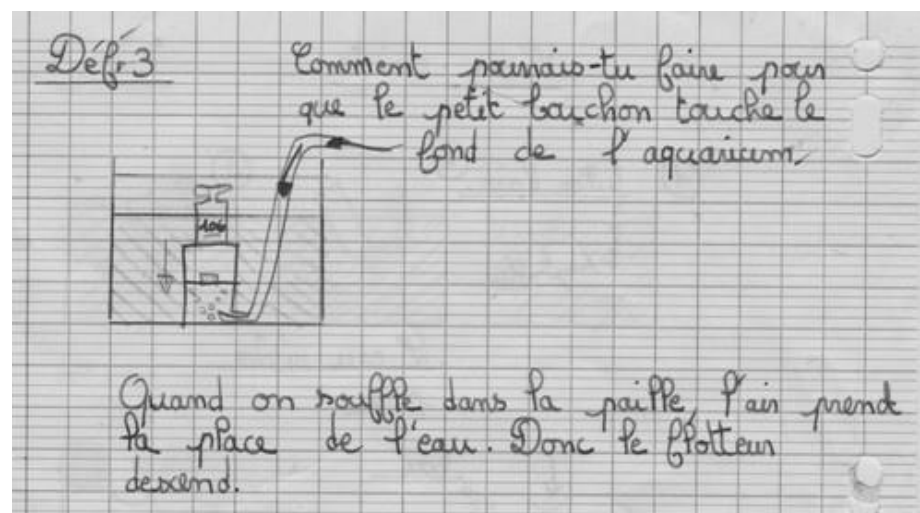 Défi 3
Comment pourrais-tu faire pour
que le petit bouchon touche le
fond de l'aquarium.
Quand on souffle dans la paille, l'air prend
la place de l'eau. Donc le flotteur
descend.